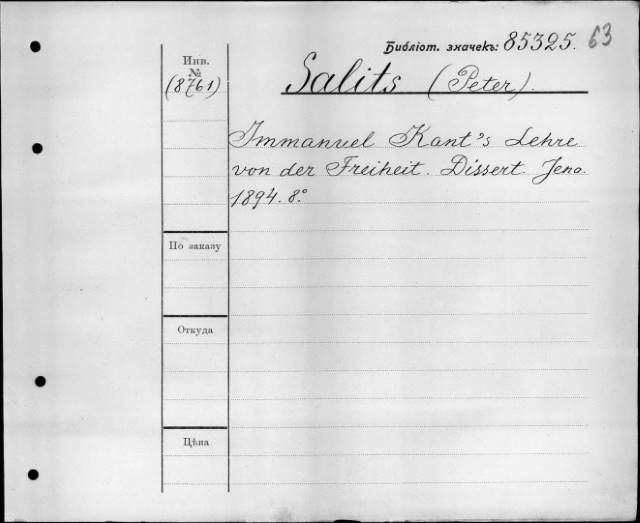 Библіот. значекъ: 85325. 63
Инв.
№
(8761)
Salits (Peter).
Immanuel Kant's Lehre
von der Freiheit. Dissert. Jena.
1894. 8.°
По заказу
Откуда
Цѣна